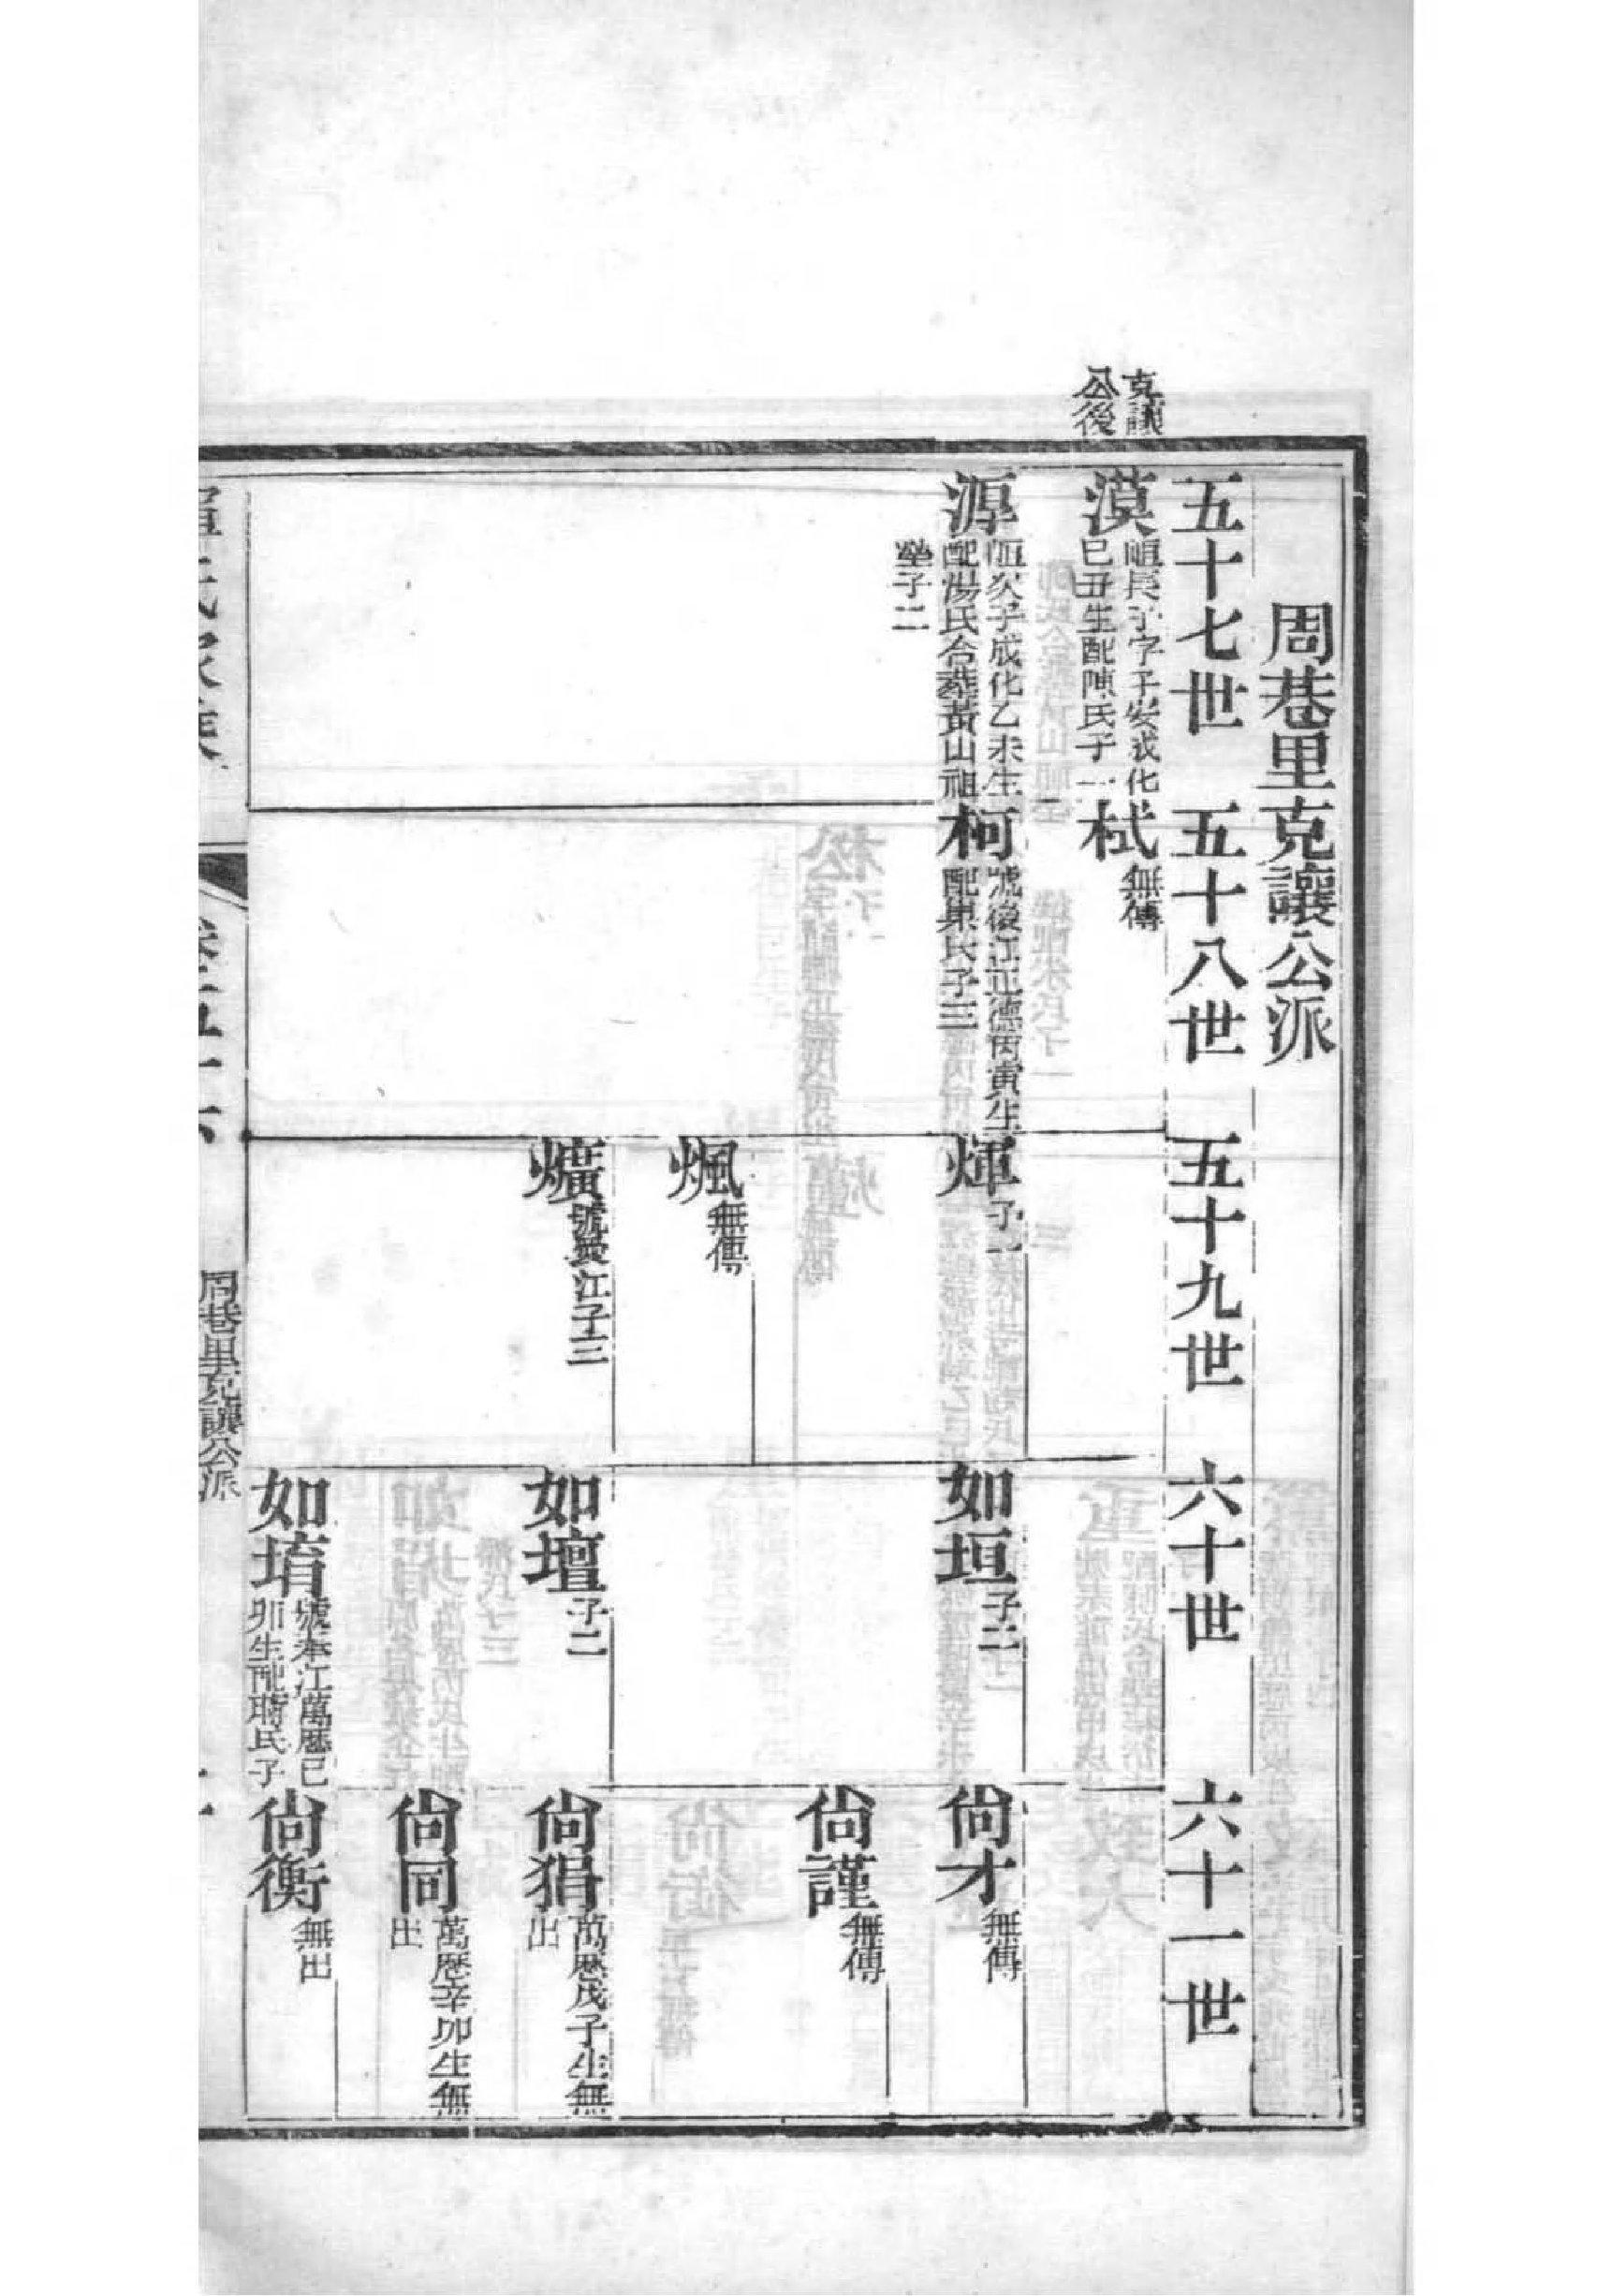 周巷里克讓公派
五十七世
五十八世
五十九世
六十世
六十一世
克讓
公後
漠
𬀩長子字子安成化
己丑生配陳氏子一
栻
無傳
源
次子成化乙未生
配湯氏合葬黃山祖
塋子二
柯
號後江正德丙寅生
配巢氏子三
煇
子一
如垣
子二
尙才
無傳
尙謹
無傳
無傳
爌
號愛江子三
如壇
子二
尙狷
萬歷戊子生無
出
尙同
萬歷辛卯生無
出
如堉
號奉江萬歷己
卯生配蔣氏子
尙衡
無出
惲氏家乘
卷五十六
周巷里克讓公派